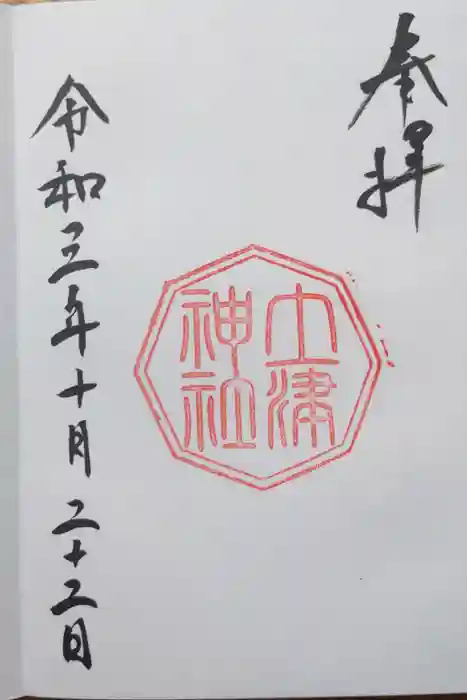 奉拝
土津
神社
令和三年十月二十二日